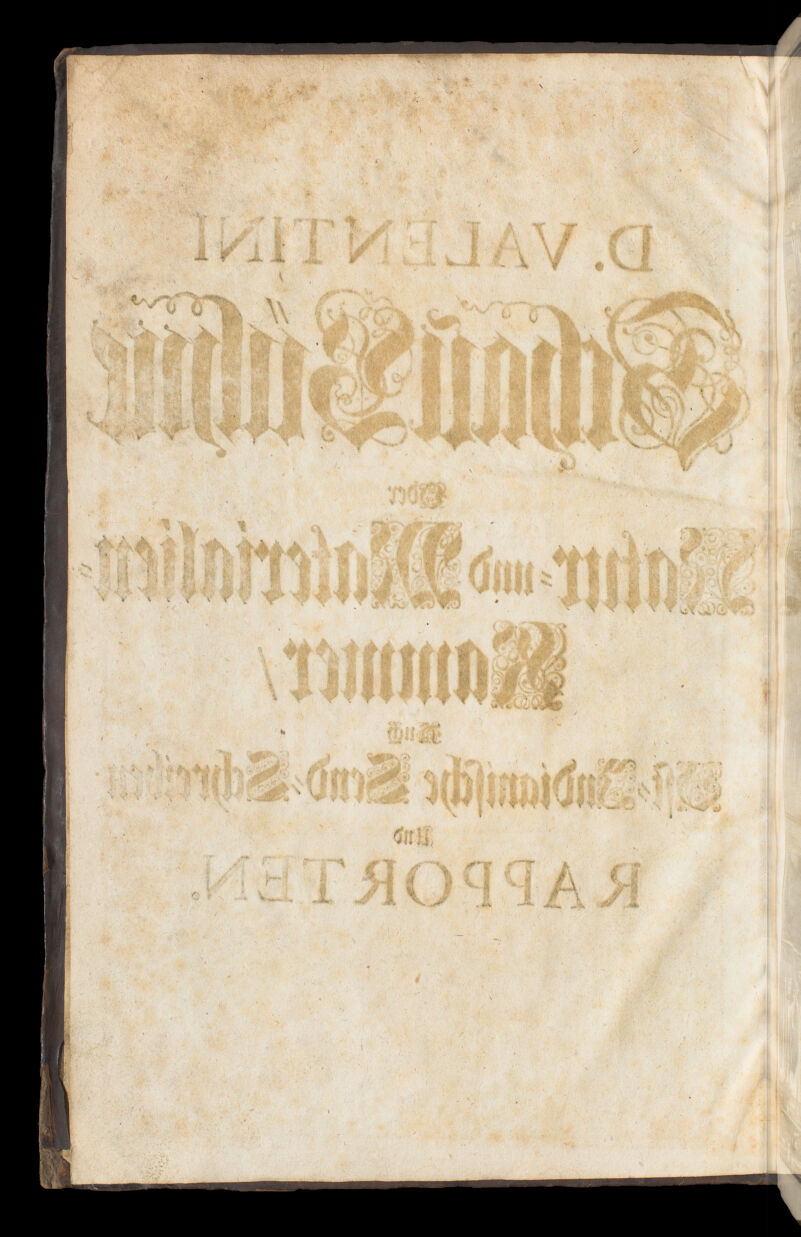 D. VALENTINI
SchauBühne
Oder
Natur- und Materialien-
Kammer/
Auch
Ost-Indianische Send-Schreiben
Und
RAPPORTEN.